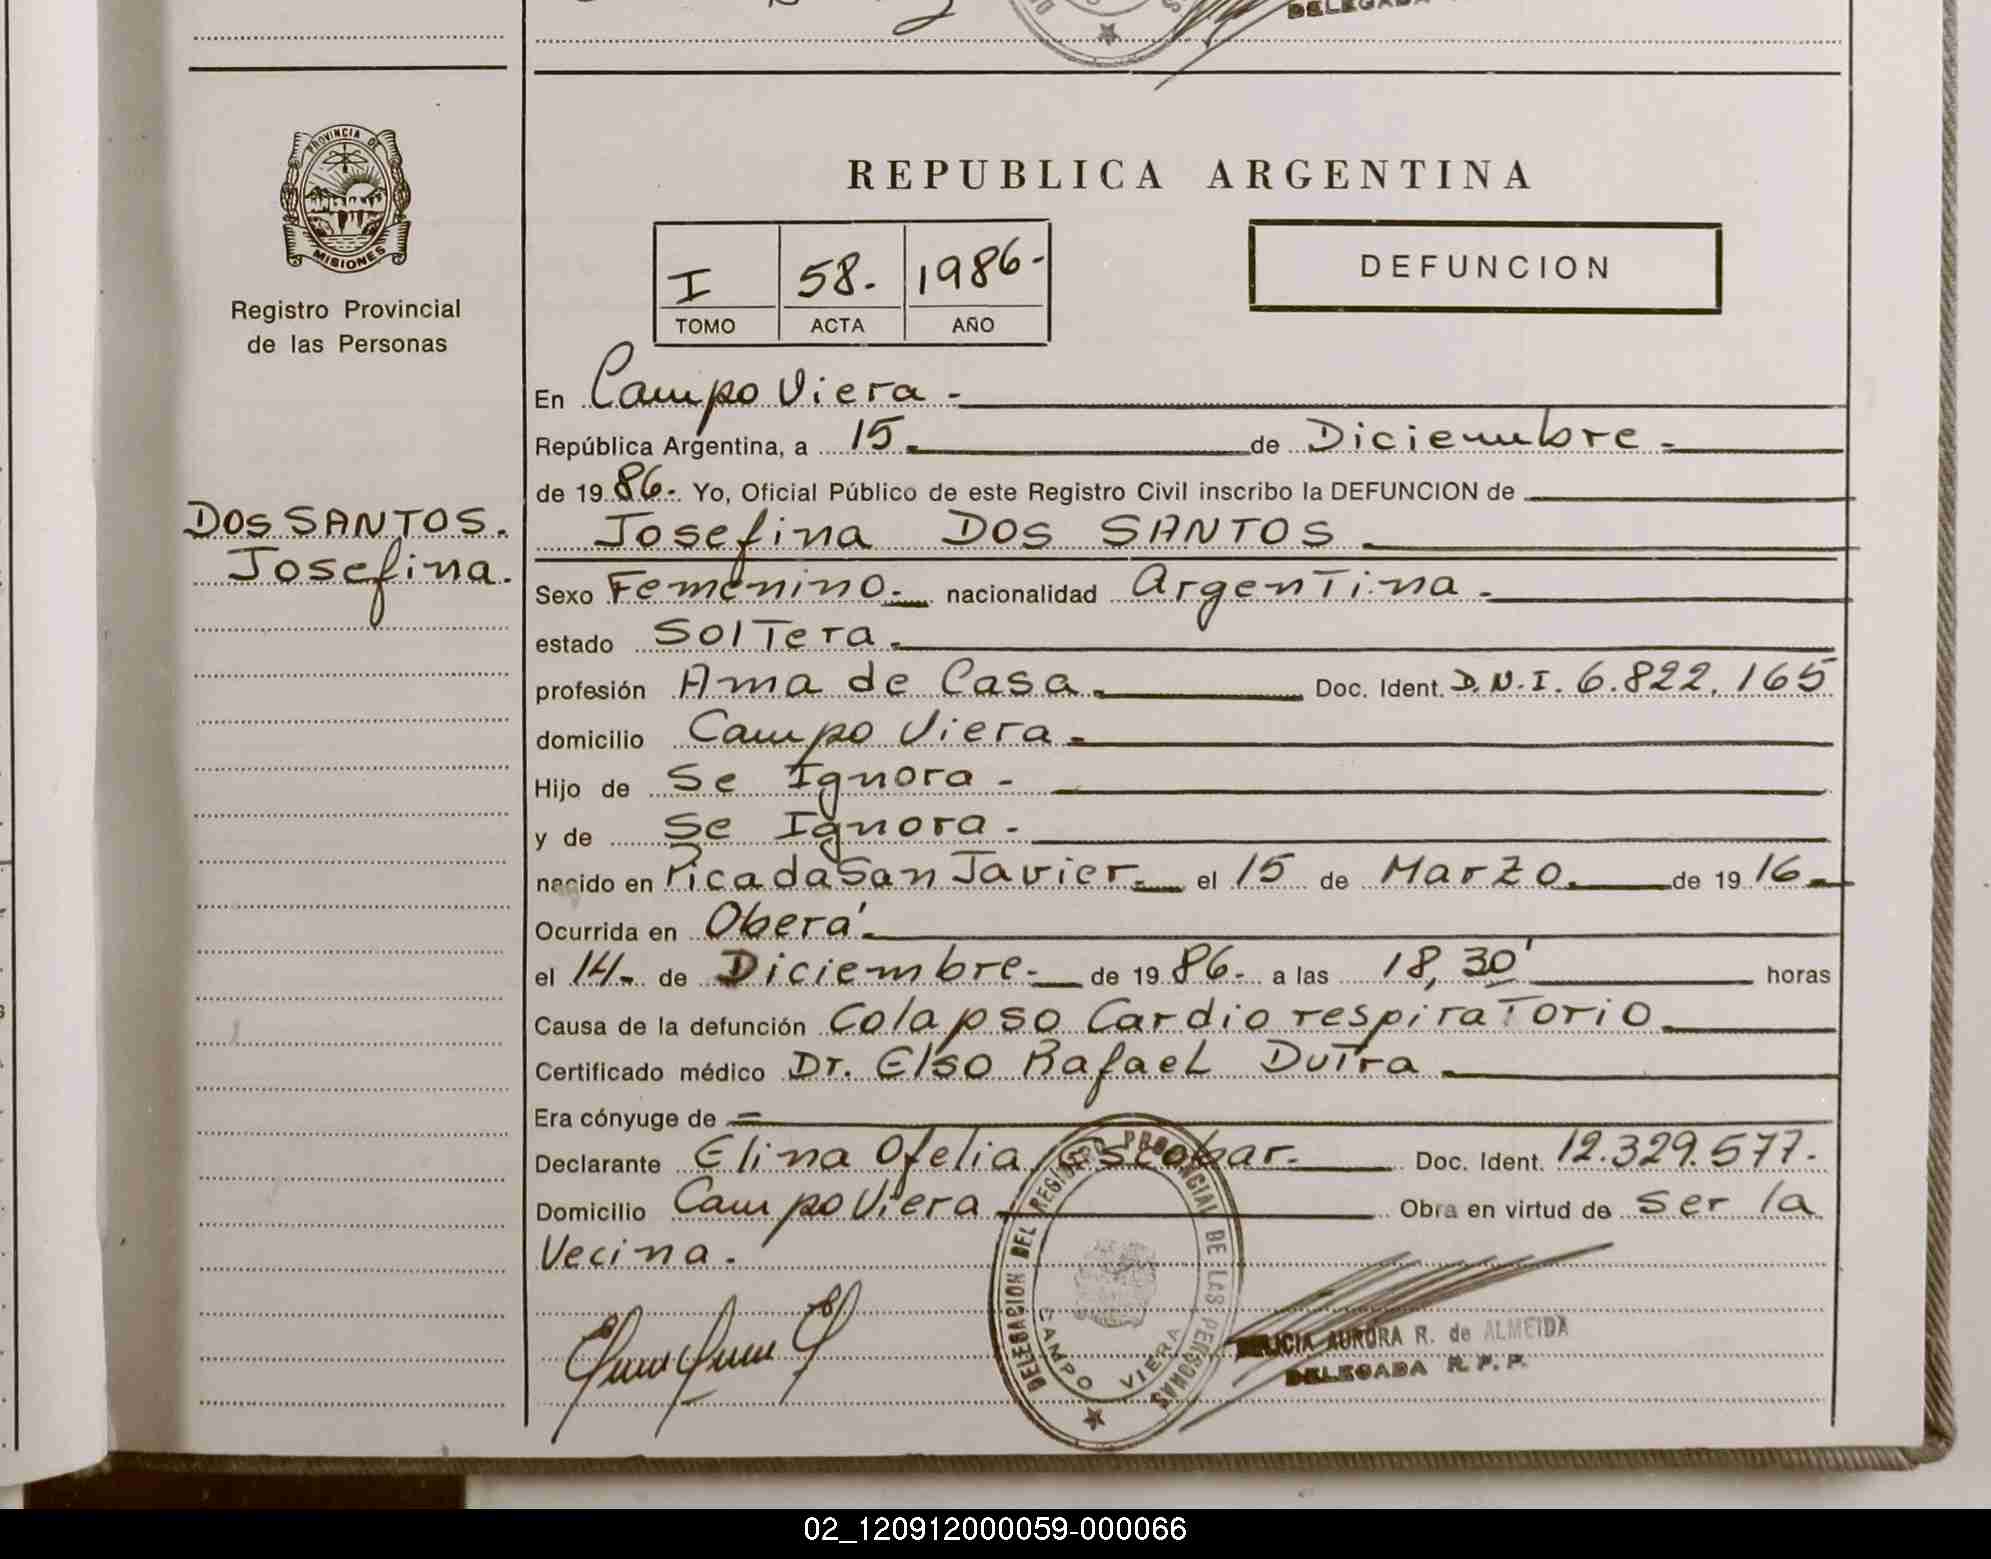 DELEGADA
PROVINCIA DE
MISIONES
Registro Provincial
de las Personas
DOS SANTOS.
Josefina.
REPUBLICA ARGENTINA
I 58. 1986-
TOMO ACTA AÑO
DEFUNCION
En Campo Viera -
República Argentina, a 15. de Diciembre -
de 19 86- Yo, Oficial Público de este Registro Civil inscribo la DEFUNCION de
Josefina DOS SANTOS
Sexo Femenino.- nacionalidad Argentina -
estado Soltera -
profesión Ama de Casa Doc. Ident. D.N.I. 6.822.165
domicilio Campo Viera -
Hijo de Se Ignora -
y de Se Ignora -
nacido en Picada San Javier- el 15 de Marzo. de 19 16-
Ocurrida en Oberá.
el 14- de Diciembre- de 19 86- a las 18,30' horas
Causa de la defunción Colapso Cardiorespiratorio
Certificado médico Dr. Elso Rafael Dutra
Era cónyuge de =
Declarante Elina Ofelia Escobar. Doc. Ident. 12.329.577.
Domicilio Campo Viera Obra en virtud de ser la
Vecina.
DELEGACION DEL REGISTRO PROVINCIAL DE LAS PERSONAS
CAMPO VIERA
AURORA R. de ALMEIDA
DELEGADA R.P.P.
02_120912000059-000066